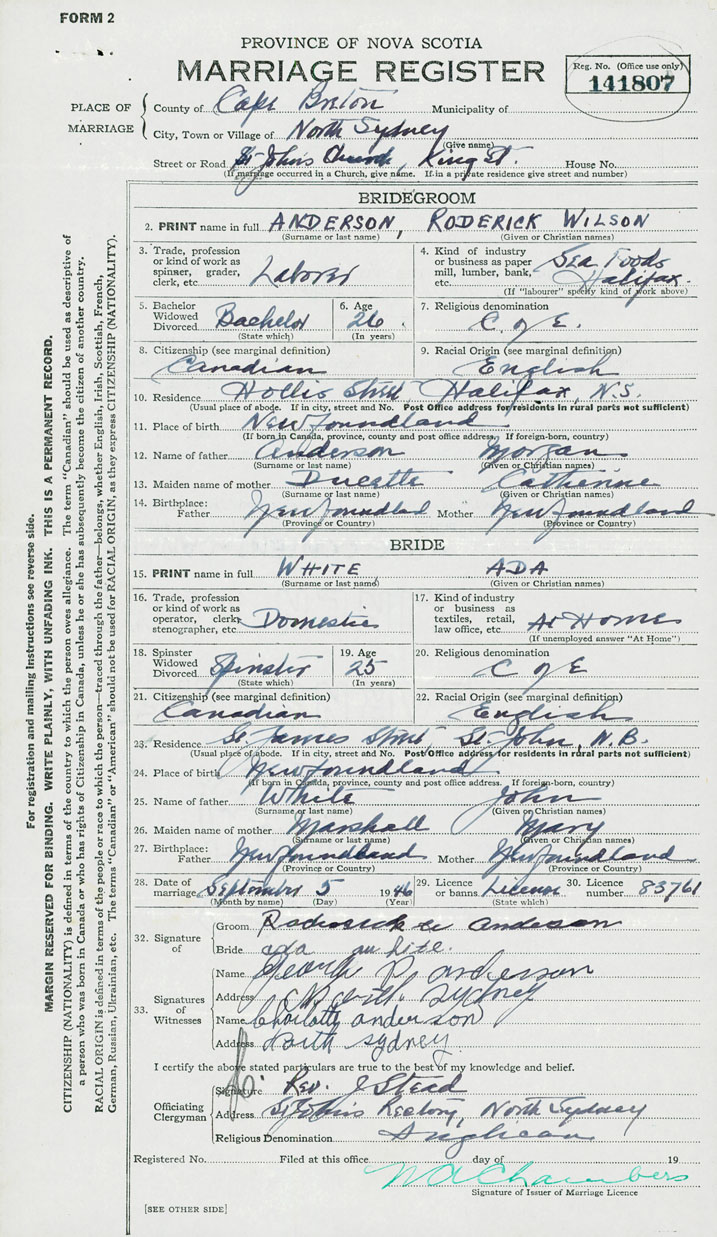 FORM 2
PROVINCE OF NOVA SCOTIA
MARRIAGE REGISTER
Reg. No. (Office use only)
141807
PLACE OF MARRIAGE
County of Cape Breton Municipality of
City, Town or Village of North Sydney
(Give name)
Street or Road St. John's Church, King St. House No.
(If marriage occurred in a Church, give name. If in a private residence give street and number)
BRIDEGROOM
2. PRINT name in full ANDERSON, RODERICK WILSON
(Surname or last name) (Given or Christian names)
3. Trade, profession or kind of work as spinner, grader, clerk, etc. Laborer
4. Kind of industry or business as paper mill, lumber, bank, etc. Sea Foods Halifax.
(If "labourer" specify kind of work above)
5. Bachelor Widowed Divorced Bachelor
(State which)
6. Age 26
(In years)
7. Religious denomination C. of E.
8. Citizenship (see marginal definition) Canadian
9. Racial Origin (see marginal definition) English
10. Residence Hollis Street, Halifax, N.S.
(Usual place of abode. If in city, street and No. Post Office address for residents in rural parts not sufficient)
11. Place of birth Newfoundland
(If born in Canada, province, county and post office address. If foreign-born, country)
12. Name of father Anderson Morgan
(Surname or last name) (Given or Christian names)
13. Maiden name of mother Ducette Catherine
(Surname or last name) (Given or Christian names)
14. Birthplace: Father Newfoundland Mother Newfoundland
(Province or Country) (Province or Country)
BRIDE
15. PRINT name in full WHITE ADA
(Surname or last name) (Given or Christian names)
16. Trade, profession or kind of work as operator, clerk, stenographer, etc. Domestic
17. Kind of industry or business as textiles, retail, law office, etc. At Home
(If unemployed answer "At Home")
18. Spinster Widowed Divorced Spinster
(State which)
19. Age 25
(In years)
20. Religious denomination C of E
21. Citizenship (see marginal definition) Canadian
22. Racial Origin (see marginal definition) English
23. Residence St. James Street, St. John, N.B.
(Usual place of abode. If in city, street and No. Post Office address for residents in rural parts not sufficient)
24. Place of birth Newfoundland
(If born in Canada, province, county and post office address. If foreign-born, country)
25. Name of father White John
(Surname or last name) (Given or Christian names)
26. Maiden name of mother Marshall Mary
(Surname or last name) (Given or Christian names)
27. Birthplace: Father Newfoundland Mother Newfoundland
(Province or Country) (Province or Country)
28. Date of marriage September 5 1946
(Month by name) (Day) (Year)
29. Licence or banns License
(State which)
30. Licence number 83761
32. Signature of
Groom Anderson
Bride ada white.
33. Signatures of Witnesses
Name George P. anderson
Address North Sydney
Name Charlotte anderson
Address North Sydney
I certify the above stated particulars are true to the best of my knowledge and belief.
Officiating Clergyman
Signature Rev. J Stead
Address St John's Rectory, North Sydney
Religious Denomination Anglican
Registered No. Filed at this office day of 19
W A Chambers
Signature of Issuer of Marriage Licence
[SEE OTHER SIDE]
For registration and mailing instructions see reverse side.
MARGIN RESERVED FOR BINDING. WRITE PLAINLY, WITH UNFADING INK. THIS IS A PERMANENT RECORD.
CITIZENSHIP (NATIONALITY) is defined in terms of the country to which the person owes allegiance. The term "Canadian" should be used as descriptive of
a person who was born in Canada or who has rights of Citizenship in Canada, unless he or she has subsequently become the citizen of another country.
RACIAL ORIGIN is defined in terms of the people or race to which the person—traced through the father—belongs, whether English, Irish, Scottish, French,
German, Russian, Ukrainian, etc. The terms "Canadian" or "American" should not be used for RACIAL ORIGIN, as they express CITIZENSHIP (NATIONALITY).